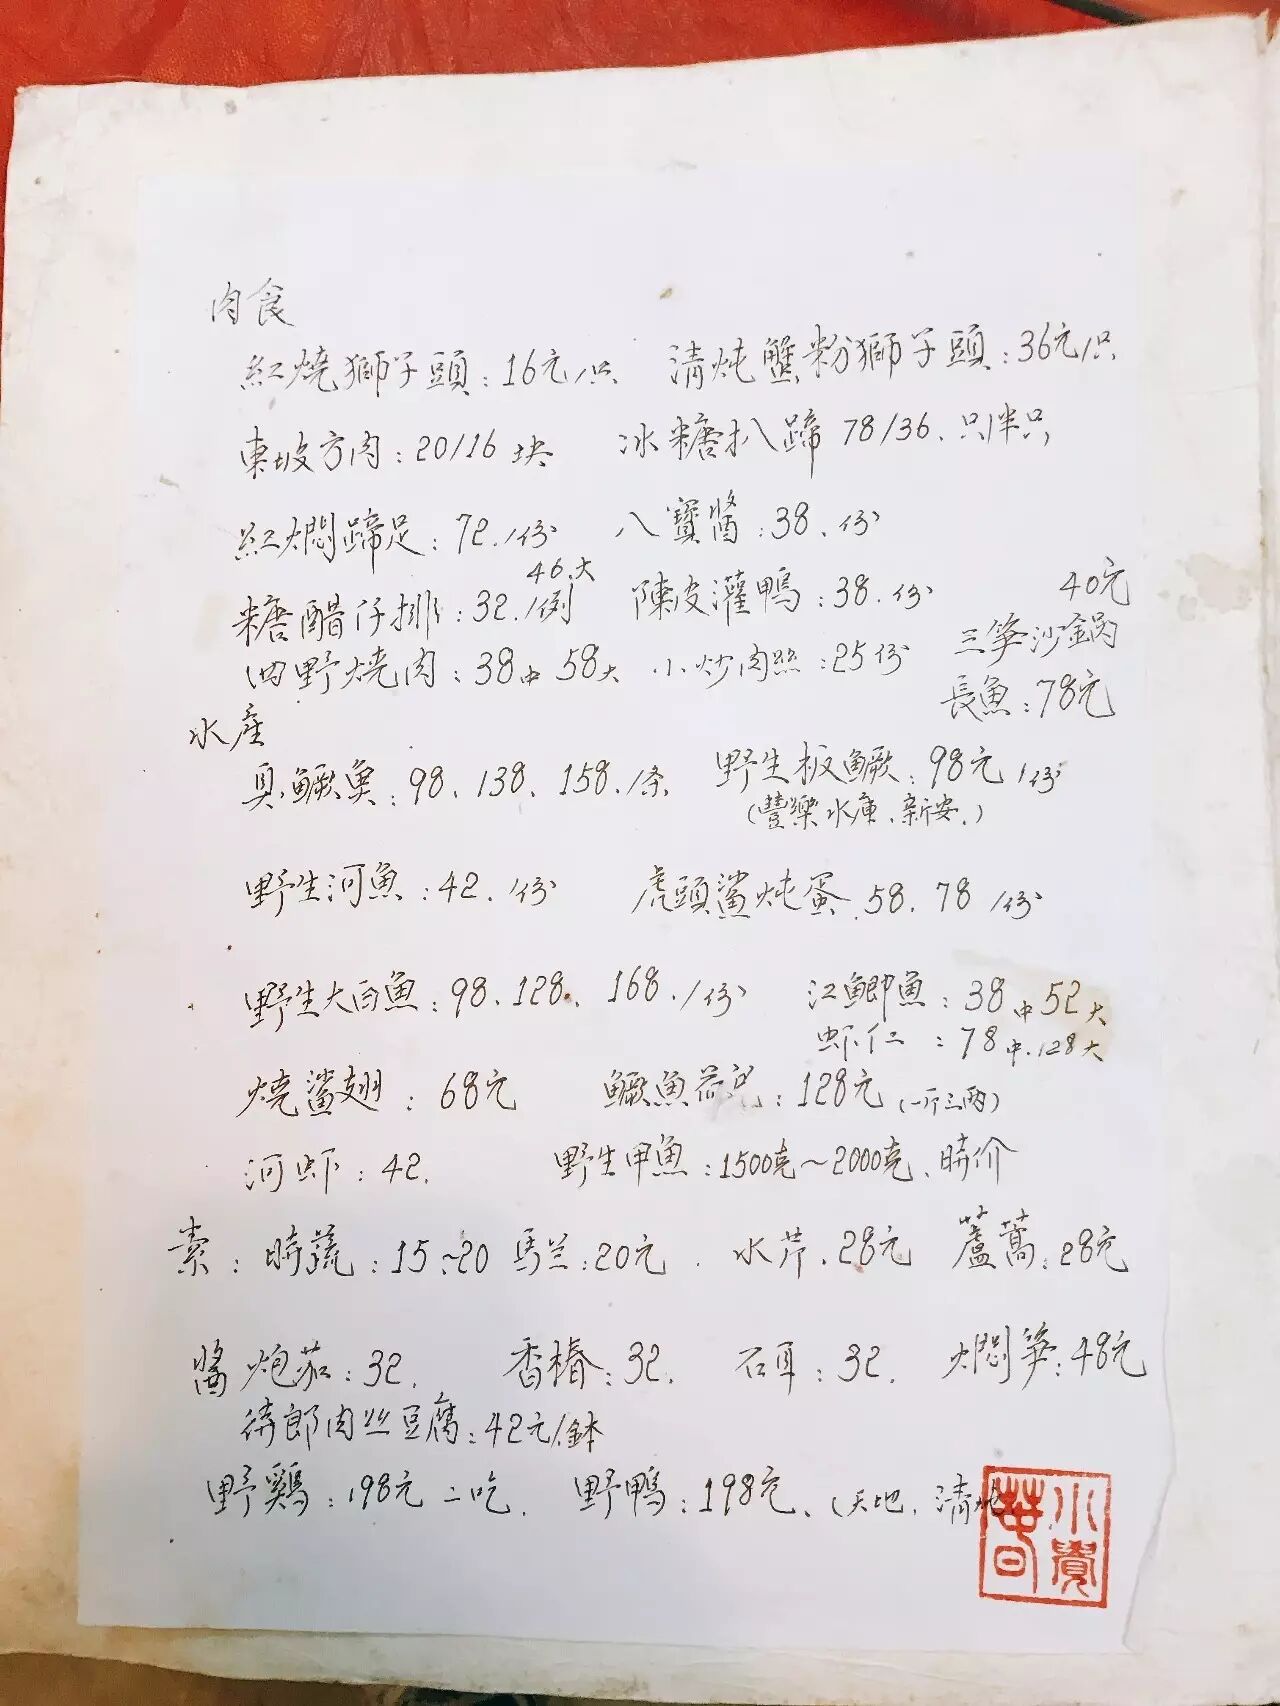 肉食
紅燒獅子頭：16元/只 清炖蟹粉獅子頭：36元/只
東坡方肉：20/16 块 冰糖扒蹄 78/36、只/半只
紅燜蹄足：72./份 八寶醬：38、份
46.大
糖醋仔排：32./例 陳皮灌鴨：38、份 40元
田野燒肉：38中 58大 小炒肉絲：25份 三筝沙鍋
長魚：78元
水産
臭鱖魚：98、138、158./条 野生板鱖：98元/份
(豐樂水庫、新安.)
野生河魚：42./份 虎頭鯊炖蛋.58、78/份
野生大白魚：98、128、168./份 江鯽魚：38中 52大
虾仁：78中.128大
燒鯊翅：68元 鱖魚荷包：128元(一斤三兩)
河虾：42. 野生甲魚：1500克～2000克、時价
素：時蔬：15~20 馬兰：20元. 水芹、28元 蘆蒿：28元
醬炮茄：32. 香椿：32. 石耳：32. 燜筝：48元
待郎肉丝豆腐：42元/鉢
野鷄：198元 二吃. 野鴨：198元、(天地、清炖
小覺